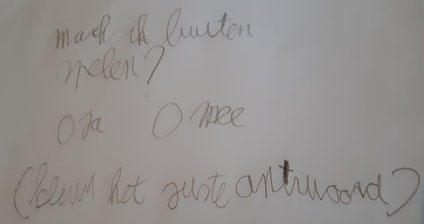 mach ik buuten
spelen?
O Ja O nee
(kleur het juste antwoord)